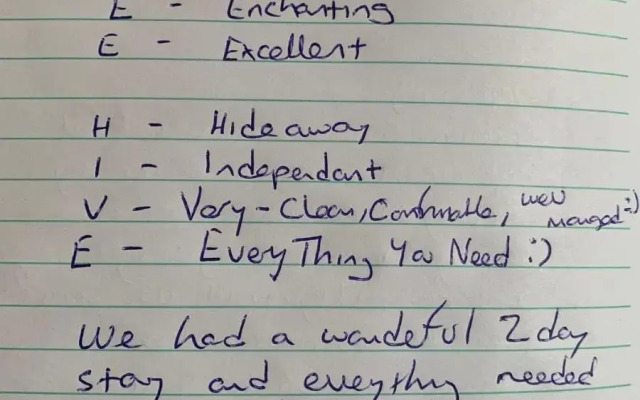 E - Enchanting
E - Excellent
H - Hideaway
I - Independant
V - Very - Clean, Comfortable, well managed :)
E - EveryThing You Need :)
We had a wondeful 2 day
stay and eveything needed